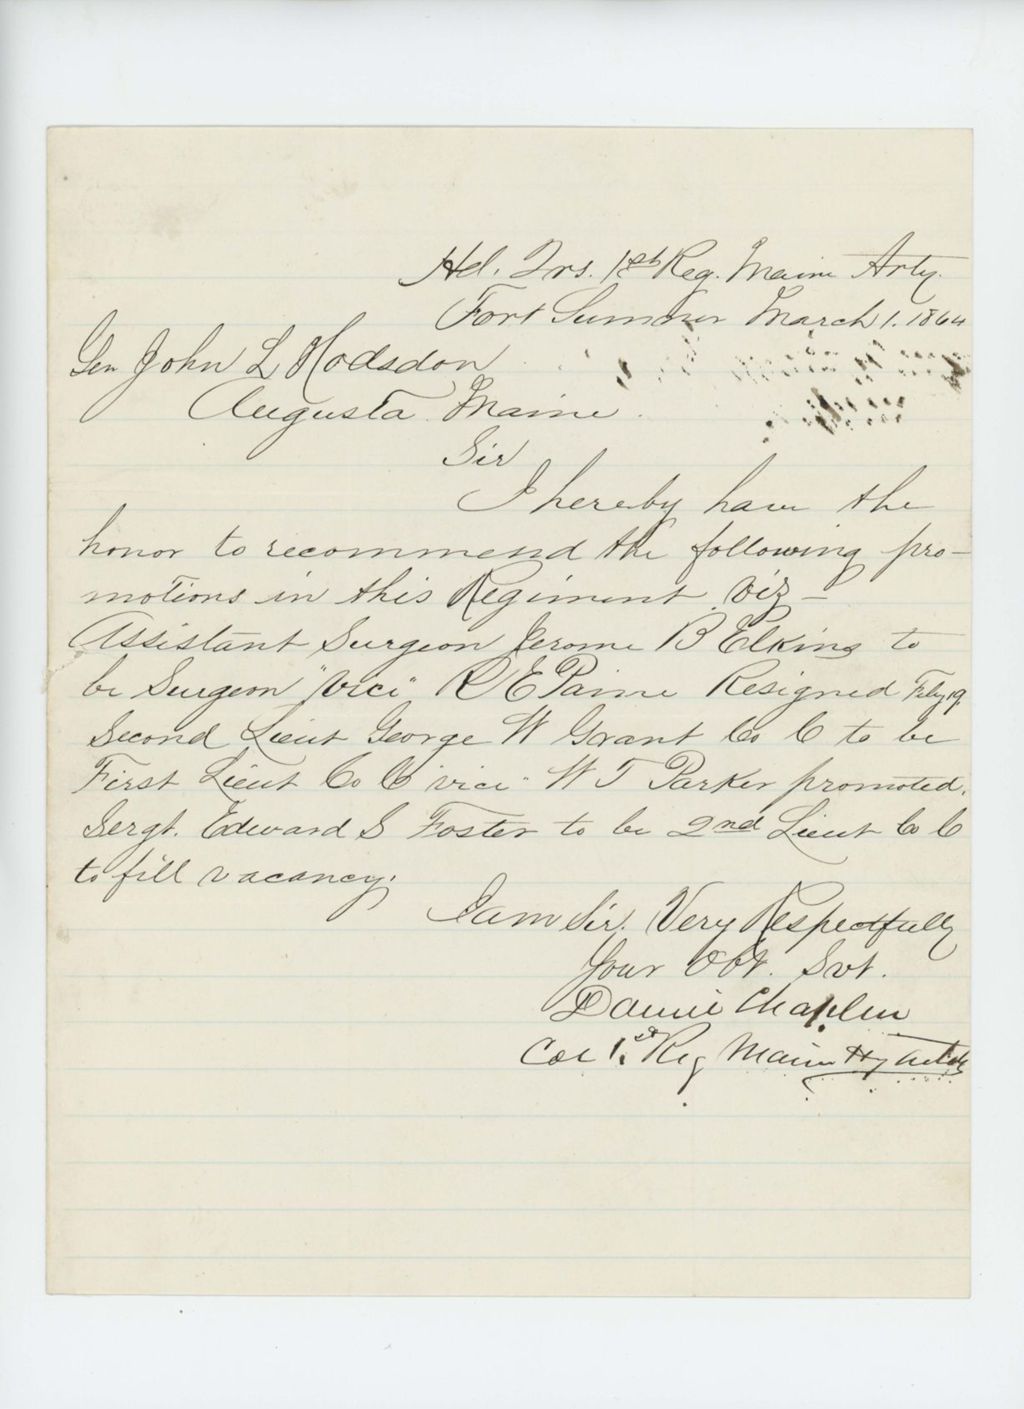 Hd. Qrs. 1st Reg. Maine Arty.
Fort Sumner March 1. 1864
Gen John L Hodsdon
Augusta Maine.
Sir
I hereby have the
honor to recommend the following pro-
motions in this Regiment viz -
Assistant Surgeon Jerome B Elkins to
be Surgeon "vice" R E Paine Resigned Feby 19.
Second Lieut George W Grant Co C to be
First Lieut Co C "vice" W T Parker promoted.
Sergt. Edward S Foster to be 2nd Lieut Co C
to fill vacancy.
I am Sir. Very Respectfully
Your Obt. Svt.
Daniel Chaplin
Col 1st Reg Maine Hy Artly